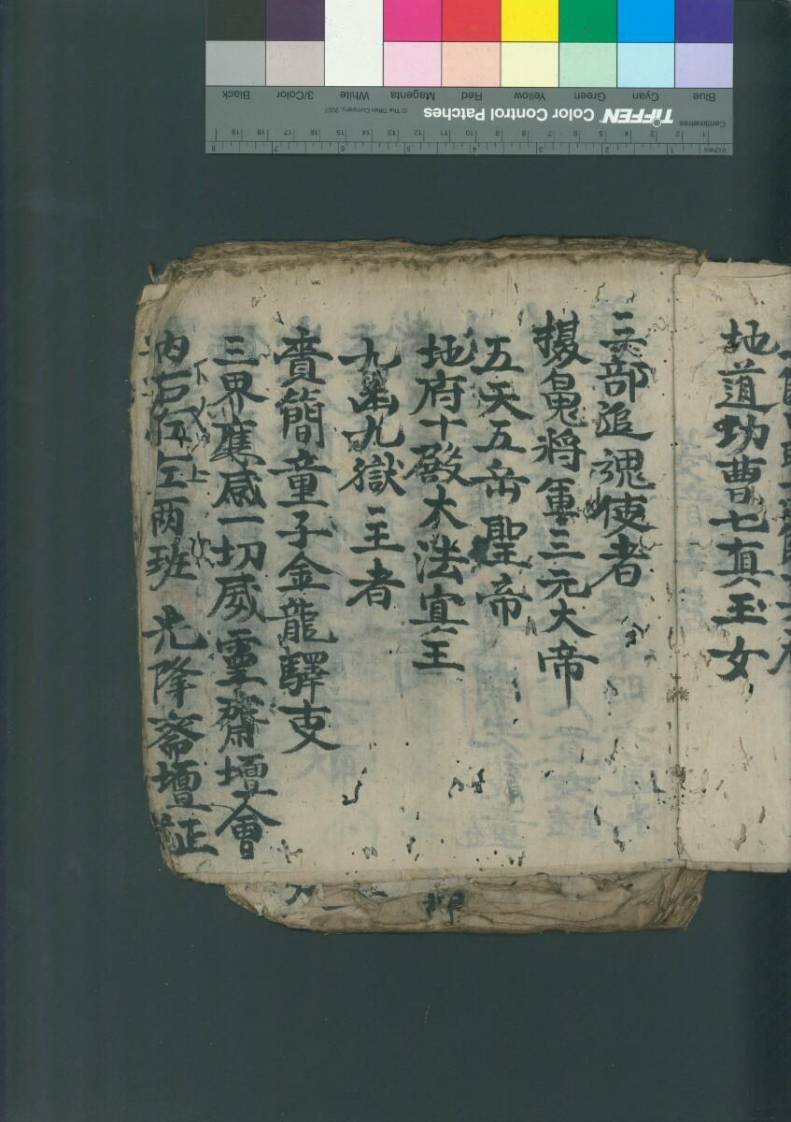 地道功曹七真玉女
三部追魂使者
攝鬼將軍三元大帝
五天五岳聖帝
地府十殿大法宜王
九幽九獄主者
賫簡童子金龍驛吏
三界應感一切威靈齋壇會
内右伍左两班 光降斋壇証
Blue Cyan Green Yellow Red Magenta White 3/Color Black
TIFFEN Color Control Patches © The Tiffen Company, 2007
Centimetres
Inches